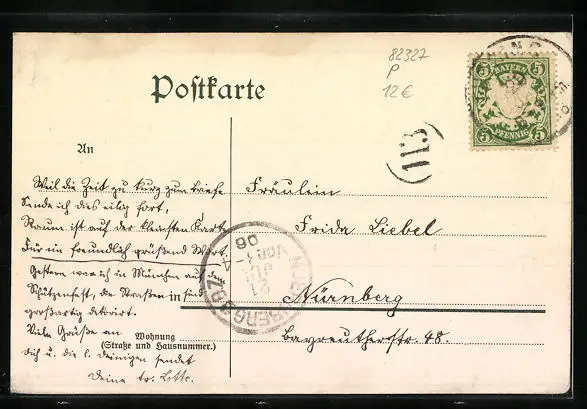 82327
P
12 €
Postkarte
5 BAYERN 5
5 PFENNIG 5
(113)
An
Weil die Zeit zu kurz zum Briefe
Sende ich dies eilig fort,
Raum ist auf der kleinsten Karte
Für ein freundlich grüßend Wort.
Gestern war ich in München auf dem
Schützenfest, die Straßen sind
großartig dekorirt.
Viele Grüße an
Dich u. die l. Deinigen sendet
Deine tr. Lotte.
Fräulein
Frida Liebel
NÜRNBERG
21 JUL
06
in
Nürnberg
Wohnung
(Straße und Hausnummer.)
Bayreutherstr. 48.